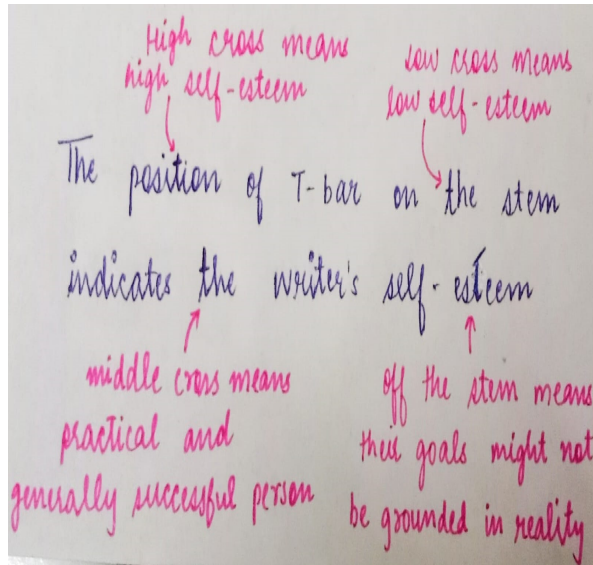 High cross means
high self-esteem
low cross means
low self-esteem
The position of T-bar on the stem
indicates the writer's self-esteem
middle cross means
practical and
generally successful person
off the stem means
their goals might not
be grounded in reality